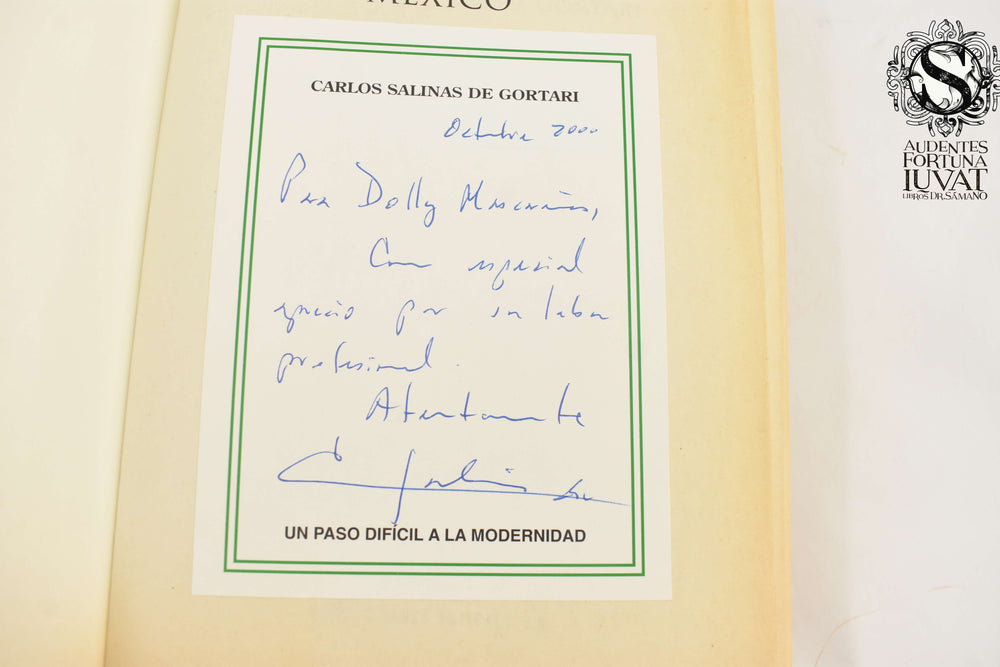 MÉXICO
CARLOS SALINAS DE GORTARI
Octubre 2000
Para Dolly Mascareñas,
Con especial
aprecio por su labor
profesional.
Atentamente
UN PASO DIFÍCIL A LA MODERNIDAD
S
AUDENTES
FORTUNA
IUVAT
LIBROS DR. SÁMANO